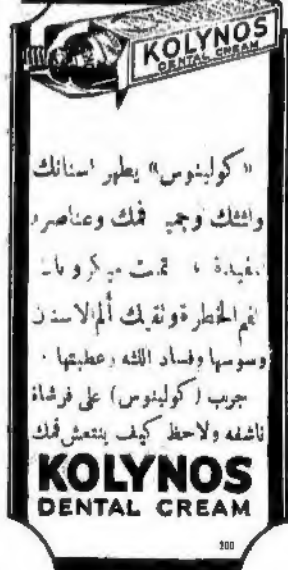 KOLYNOS
DENTAL CREAM
«كولينوس» يطهر اسنانك
ولثتك وجميع فمك وعناصره
المفيدة، تميت ميكروبات
الفم الخطرة وتقيك ألم الاسنان
وسوسها وفساد اللثه وعطبها .
جرب (كولينوس) على فرشاة
ناشفه ولاحظ كيف ينتعش فمك
KOLYNOS
DENTAL CREAM
200